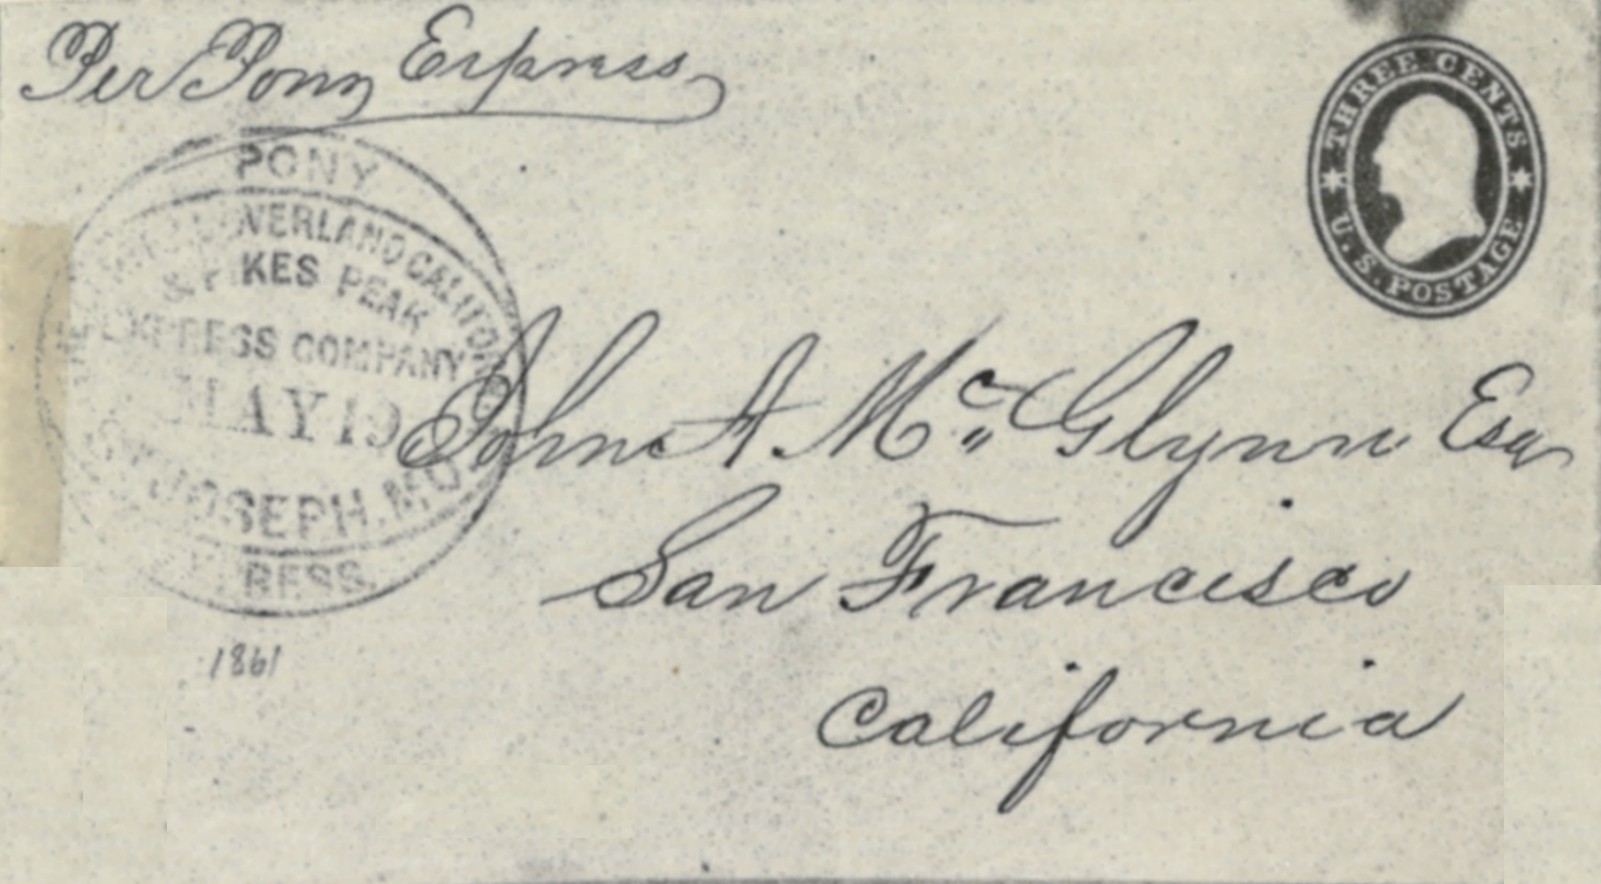 Per Pony Express
THREE CENTS
U.S. POSTAGE
PONY
OVERLAND CALIFORNIA
& PIKES PEAK
EXPRESS COMPANY
MAY 19
ST JOSEPH. MO.
EXPRESS.
John A. Mc Glynn Esq
San Francisco
California
1861